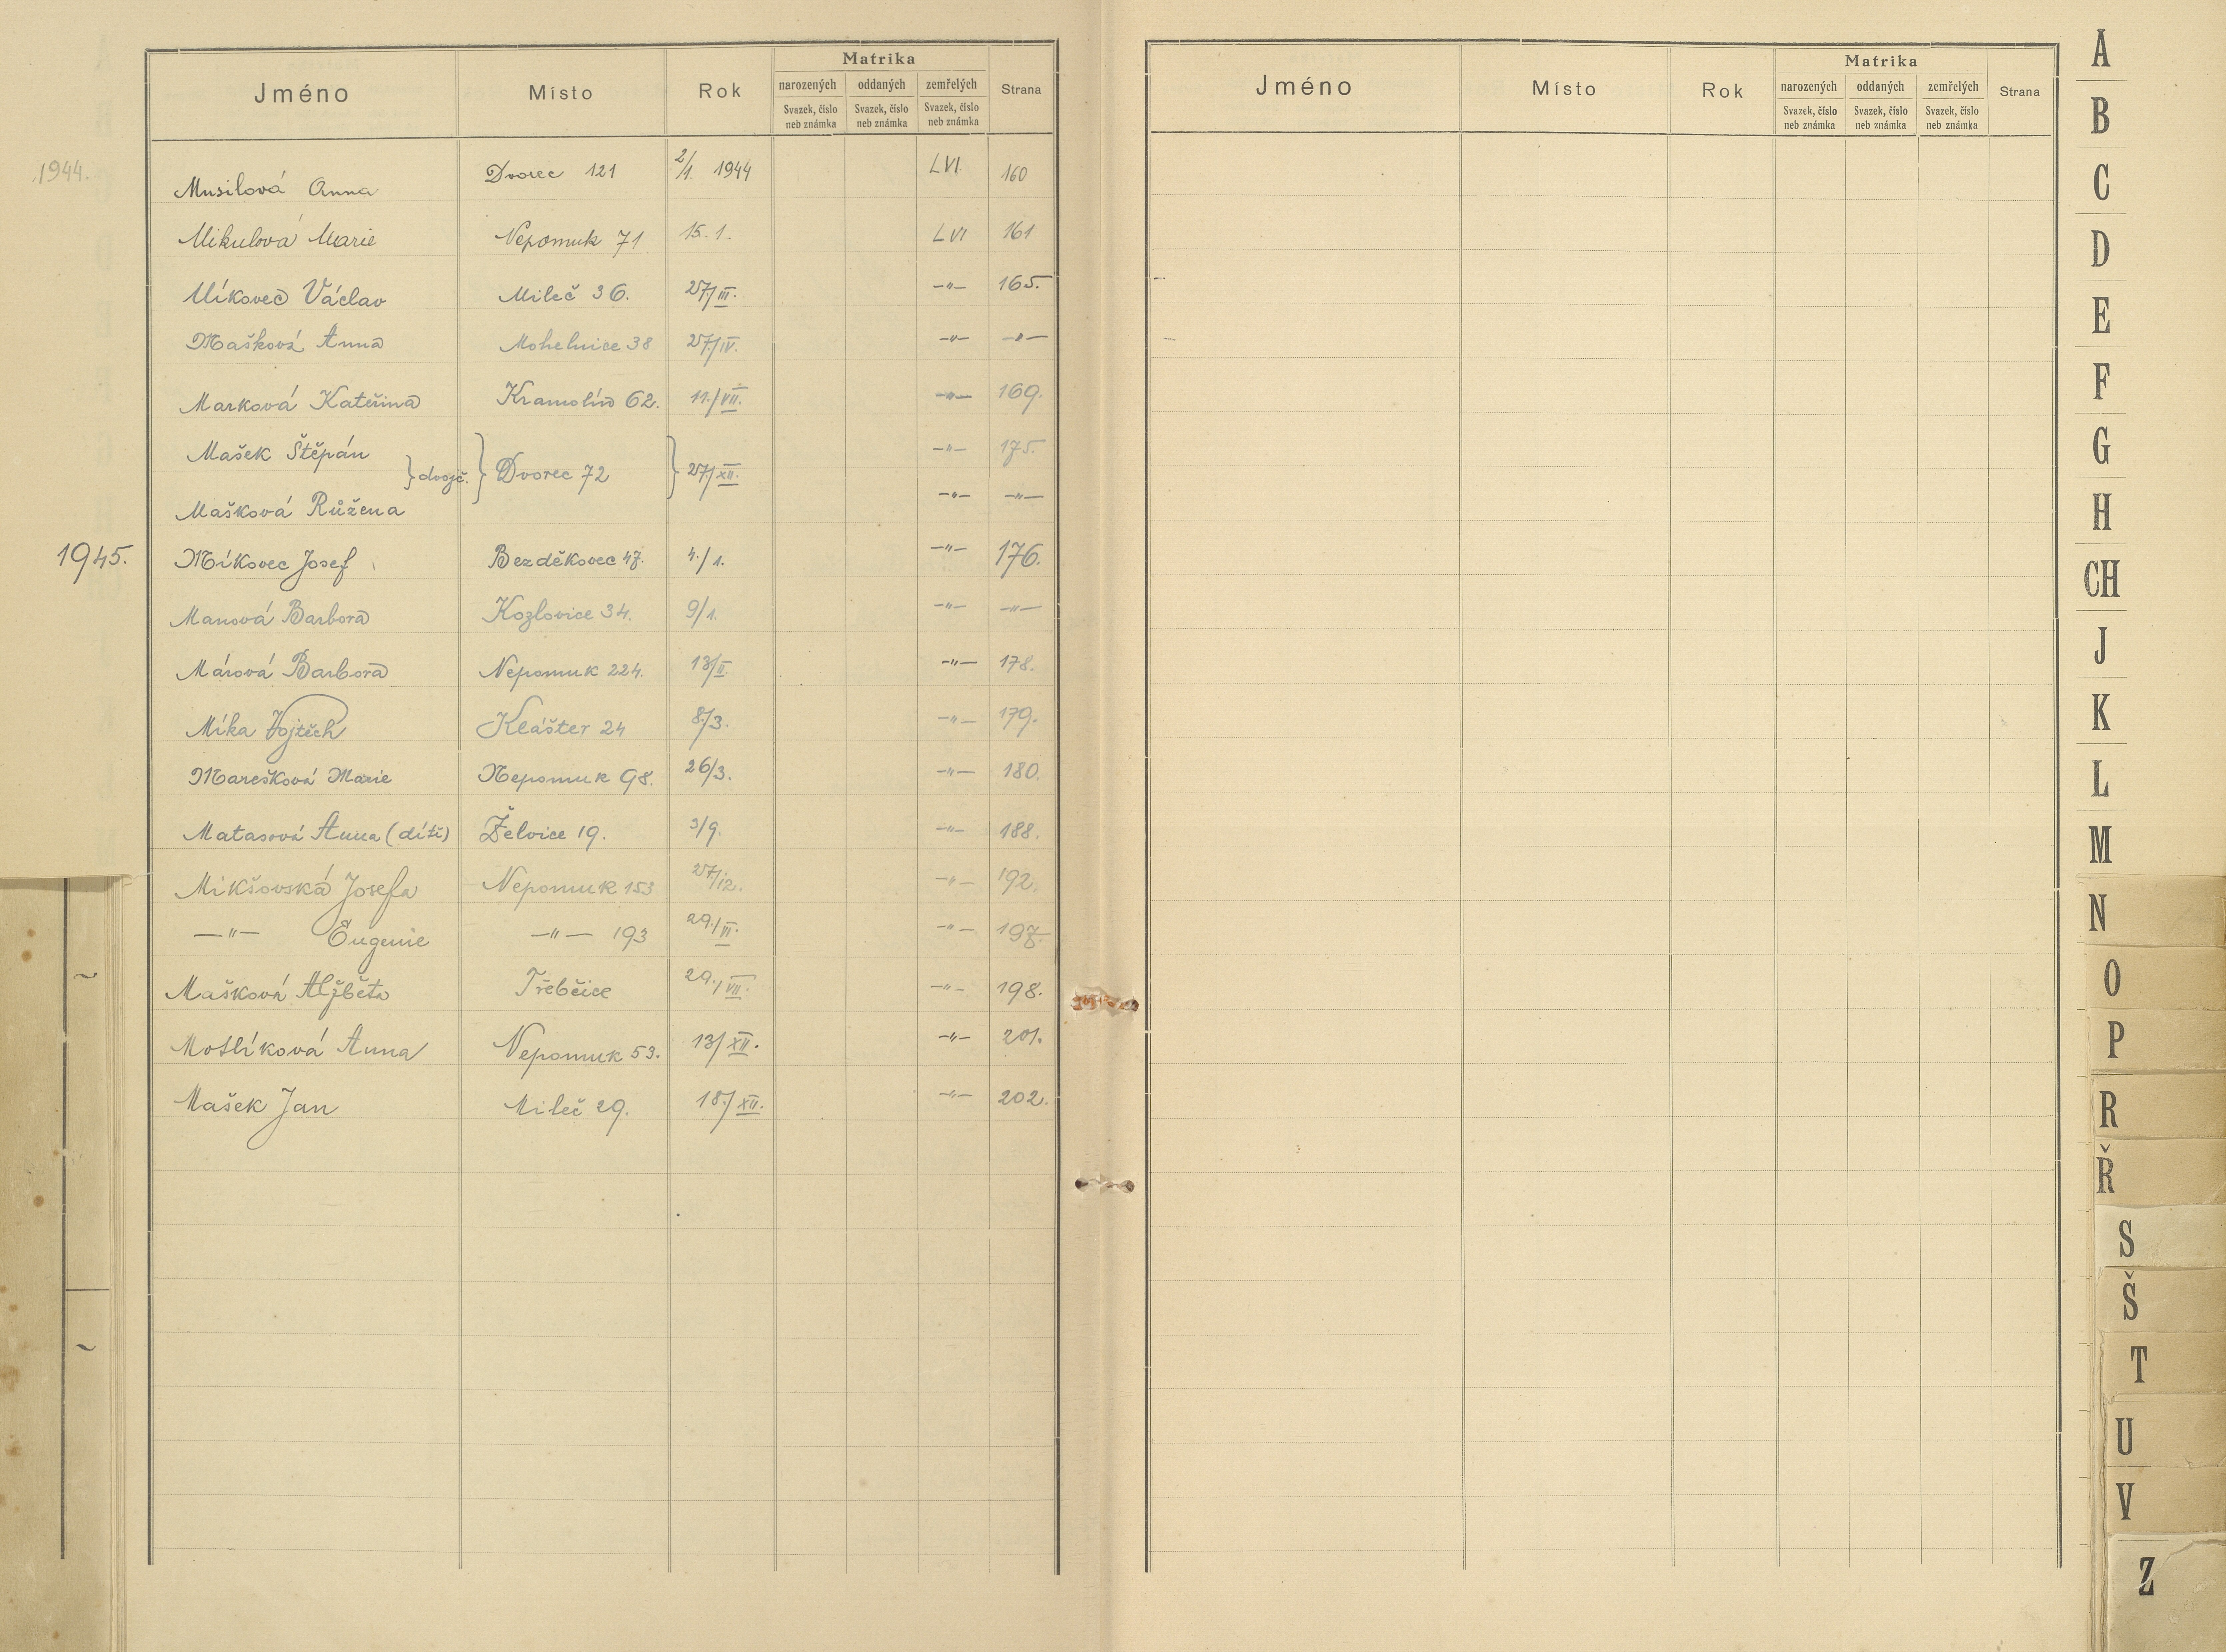 Jméno Místo Rok Matrika Strana
narozených oddaných zemřelých
Svazek, číslo neb známka Svazek, číslo neb známka Svazek, číslo neb známka
1944. Musilová Anna Dvorec 121 2/1. 1944 LVI. 160
Mikulová Marie Nepomuk 71 15. 1. LVI 161
Míkovec Václav Mileč 36. 27./III. -"- 165.
Mašková Anna Mohelnice 38 27./IV. -"- -"-
Marková Kateřina Kramolín 62. 11./VII. -"- 169.
Mašek Štěpán -"- 175.
} dvojč. } Dvorec 72 } 27./XII.
Mašková Růžena -"- -"-
1945. Míkovec Josef Bezděkovec 47. 4./1. -"- 176.
Manová Barbora Kozlovice 34. 9/1. -"- -"-
Márová Barbora Nepomuk 224. 13/II. -"- 178.
Míka Vojtěch Klášter 24 8./3. -"- 179.
Marešková Marie Nepomuk 98. 26/3. -"- 180.
Matasová Anna (dítě) Želvice 19. 3/9. -"- 188.
Mikšovská Josefa Nepomuk 153 27./12. -"- 192.
-"- Eugenie -"- 193 29./VI. -"- 197.
Mašková Alžběta Třebčice 29./VII. -"- 198.
Motlíková Anna Nepomuk 53. 13/XII. -"- 201.
Mašek Jan Mileč 29. 18./XII. -"- 202.
Jméno Místo Rok Matrika Strana
narozených oddaných zemřelých
Svazek, číslo neb známka Svazek, číslo neb známka Svazek, číslo neb známka
A
B
C
D
E
F
G
H
CH
J
K
L
M
N
O
P
R
Ř
S
Š
T
U
V
Z